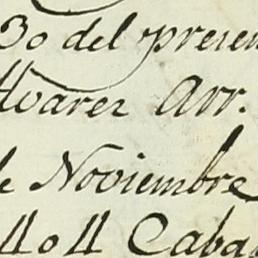 30 del presen
lvarez Arr.
de Noviembre
Caba